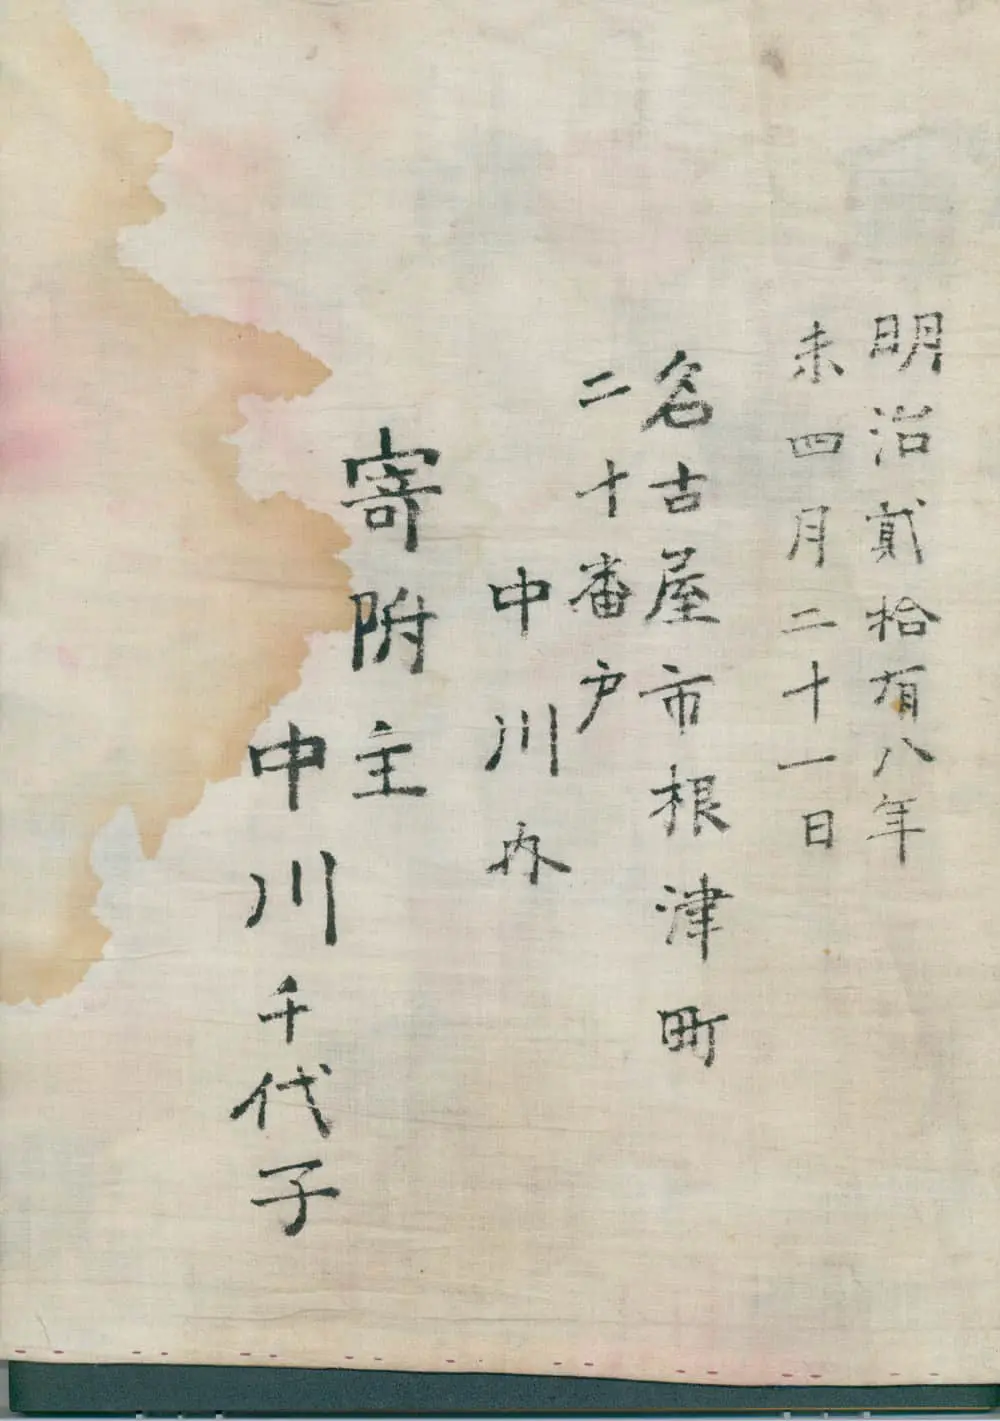 明治貳拾有八年
未四月二十一日
名古屋市根津町
二十番戸
中川内
寄附主
中川千代子